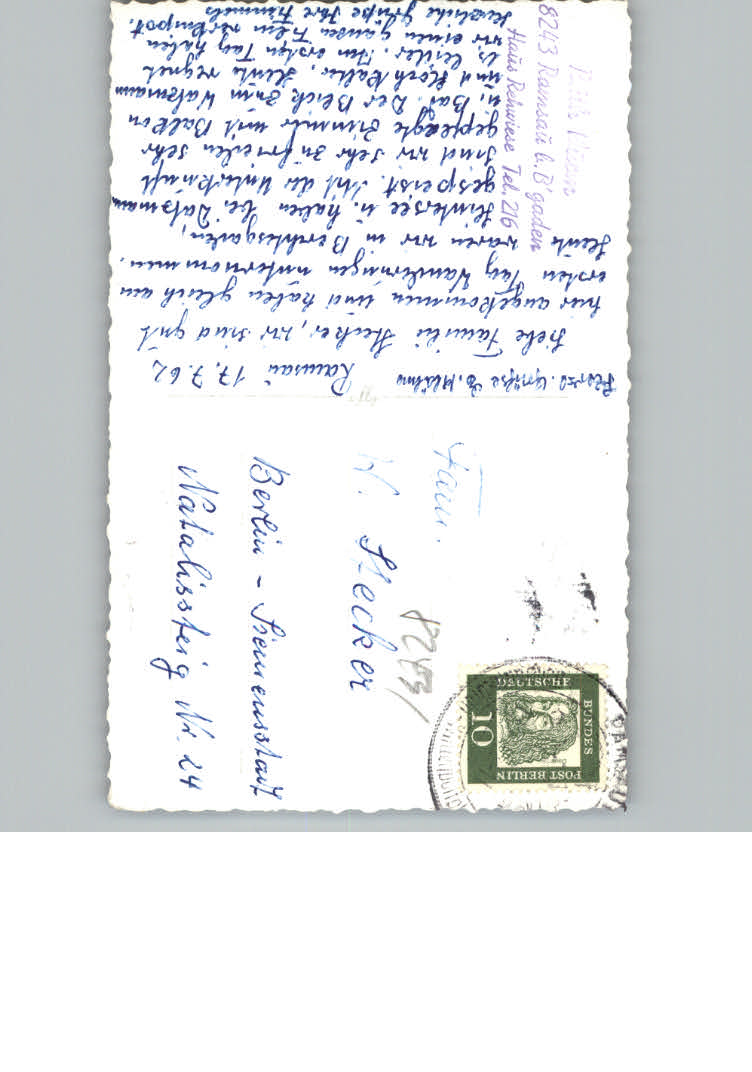 Ramsau 17.7.62
Liebe Familie Stecker, wir sind gut
hier angekommen und haben gleich am
ersten Tag Wanderungen unternommen.
Heute waren wir in Berchtesgaden,
Hintersee u. haben bei
gespeist. Mit der Unterkunft
sind wir sehr zufrieden sehr
gepflegte Zimmer mit Balkon
u. Bad. Der Blick zum Watzmann
und Hochkalter, Heute regnet
es leider. Am ersten Tag haben
wir einen ganzen Film verknipst.
Herzliche Grüße Ihre
Haus Rehwiese Tel. 216
8243 Ramsau b. B'gaden
Fam.
W. Stecker
Berlin - Siemensstadt
Natalissteig Nr. 24
8243
DEUTSCHE
BUNDES
POST BERLIN
10